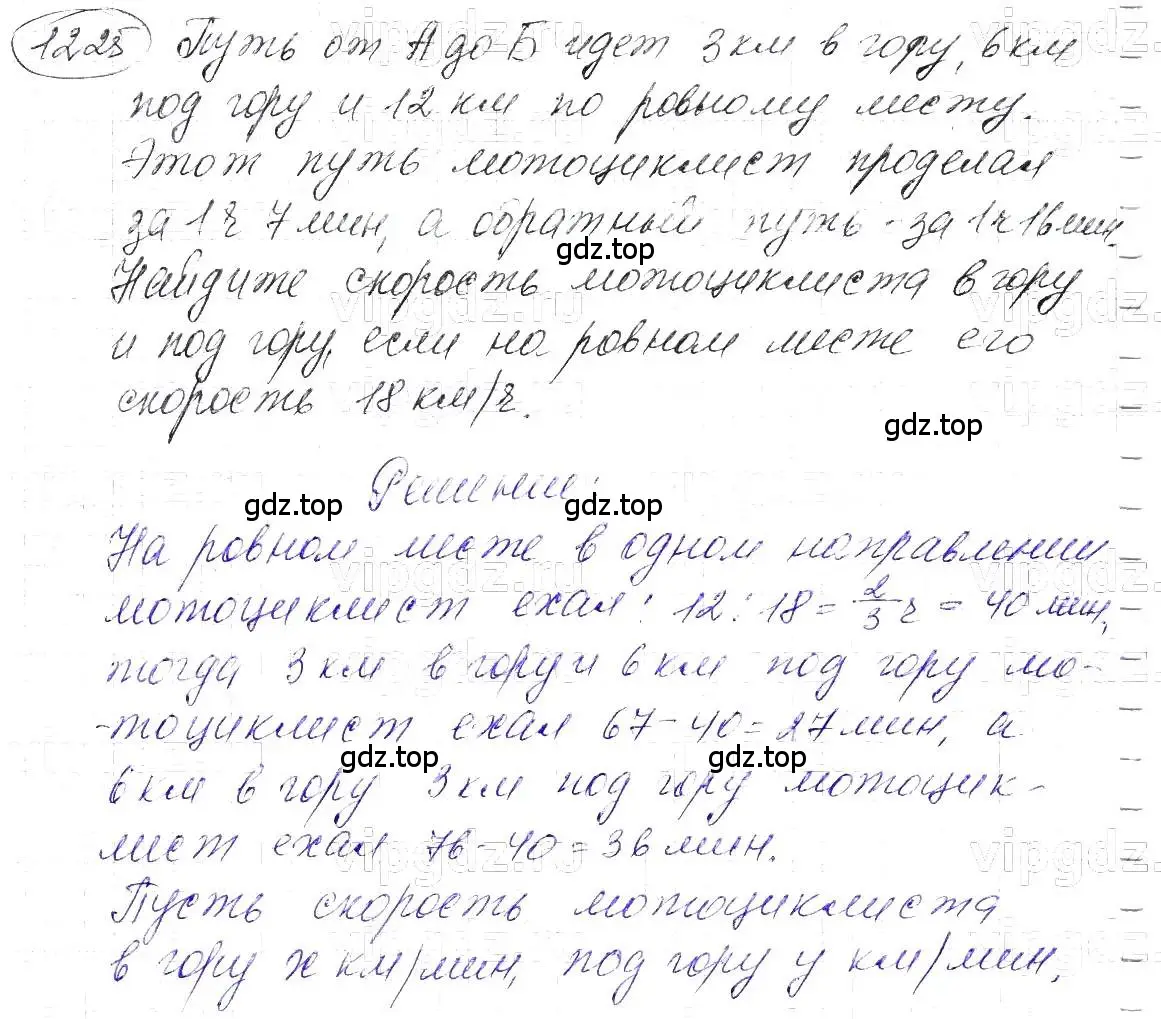 1225 Путь от А до Б идет 3 км в гору, 6 км
под гору и 12 км по ровному месту.
Этот путь мотоциклист проделал
за 1 ч 7 мин, а обратный путь - за 1 ч 16 мин.
gdz.top
Найдите скорость мотоциклиста в гору
и под гору, если на ровном месте его
скорость 18 км/ч.
gdz.top
Решение:
gdz.top gdz.top
На ровном месте в одном направлении
мотоциклист ехал: 12 : 18 = 2/3 ч = 40 мин,
тогда 3 км в гору и 6 км под гору мо-
-тоциклист ехал 67 - 40 = 27 мин, а
gdz.top gdz.top
6 км в гору 3 км под гору мотоцик-
лист ехал 76 - 40 = 36 мин.
Пусть скорость мотоциклиста
в гору x км/мин, под гору y км/мин,
vipgdz.ru